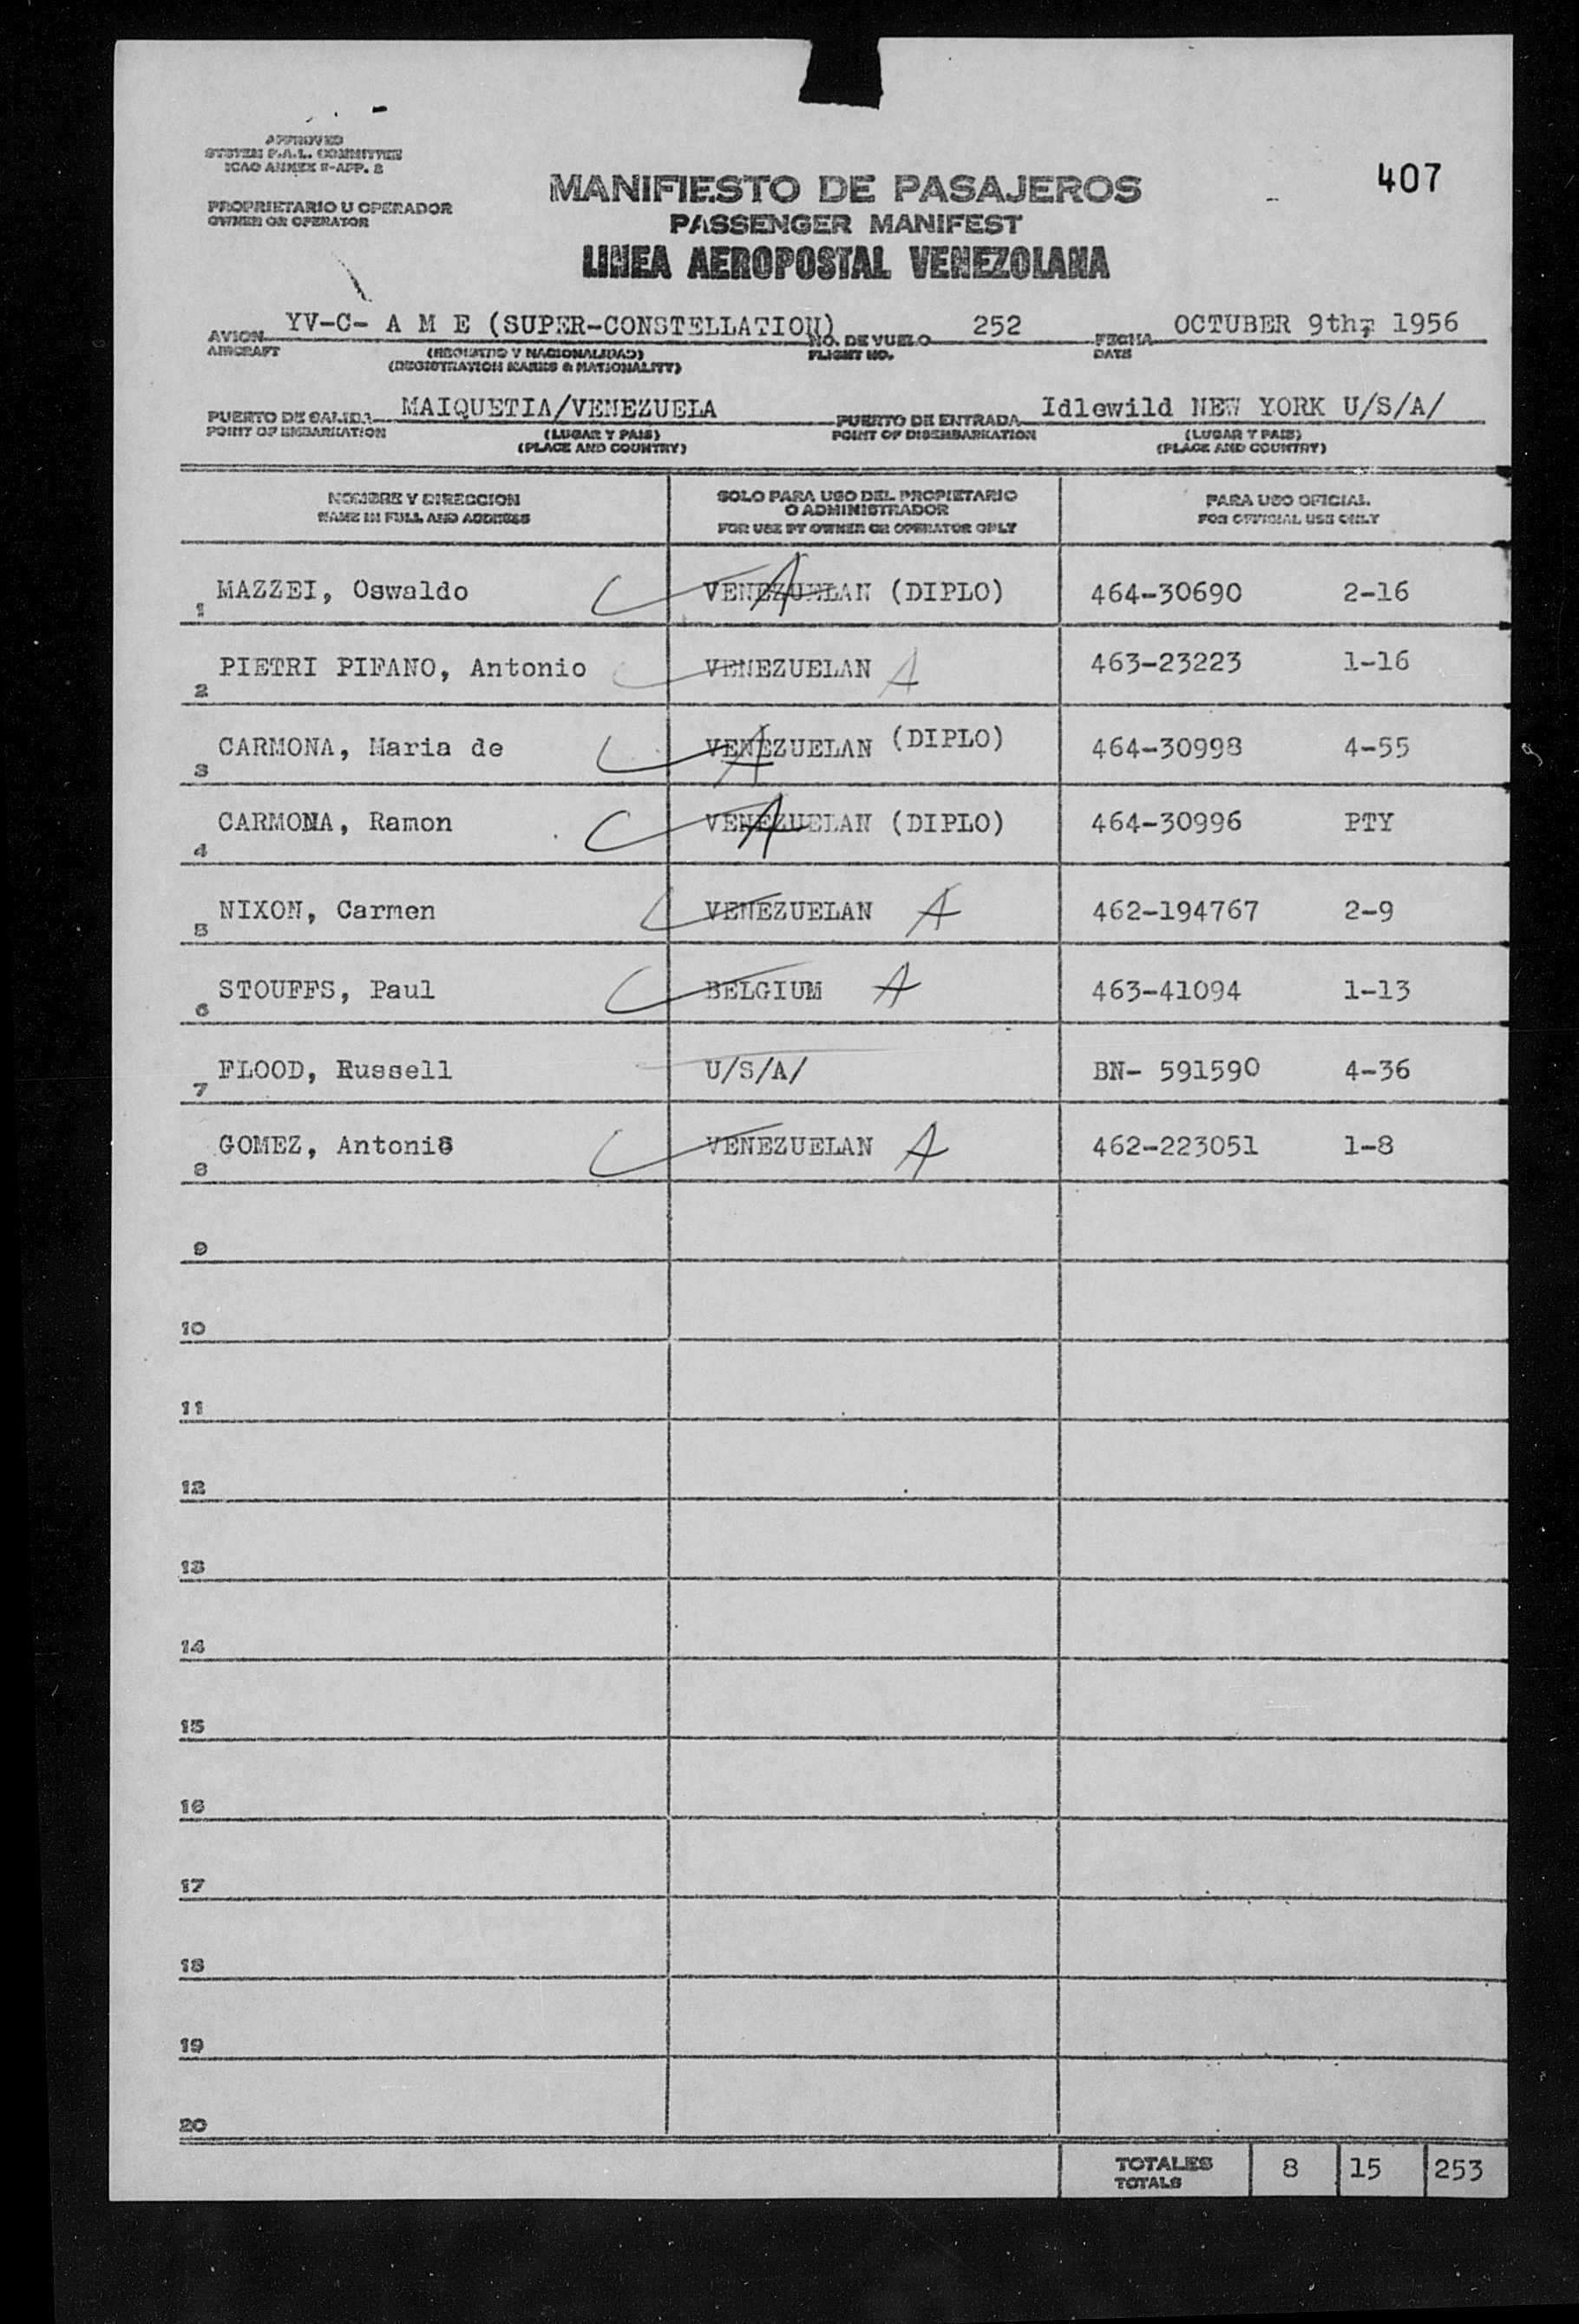 APPROVED
SYSTEM F.A.L. COMMITTEE
ICAO ANNEX 9-APP. 2
407
MANIFIESTO DE PASAJEROS
PROPRIETARIO U OPERADOR
OWNER OR OPERATOR
PASSENGER MANIFEST
LINEA AEROPOSTAL VENEZOLANA
AVION YV-C- A M E (SUPER-CONSTELLATION) NO. DE VUELO 252 FECHA OCTUBER 9th, 1956
AIRCRAFT (REGISTRO Y NACIONALIDAD) FLIGHT NO. DATE
(REGISTRATION MARKS & NATIONALITY)
PUERTO DE SALIDA MAIQUETIA/VENEZUELA PUERTO DE ENTRADA Idlewild NEW YORK U/S/A/
POINT OF EMBARKATION (LUGAR Y PAIS) POINT OF DISEMBARKATION (LUGAR Y PAIS)
(PLACE AND COUNTRY) (PLACE AND COUNTRY)
NOMBRE Y DIRECCION
NAME IN FULL AND ADDRESS
SOLO PARA USO DEL PROPIETARIO
O ADMINISTRADOR
FOR USE BY OWNER OR OPERATOR ONLY
PARA USO OFICIAL
FOR OFFICIAL USE ONLY
1 MAZZEI, Oswaldo VENEZUELAN (DIPLO) A 464-30690 2-16
2 PIETRI PIFANO, Antonio VENEZUELAN A 463-23223 1-16
3 CARMONA, Maria de VENEZUELAN (DIPLO) A 464-30998 4-55
4 CARMONA, Ramon VENEZUELAN (DIPLO) A 464-30996 PTY
5 NIXON, Carmen VENEZUELAN A 462-194767 2-9
6 STOUFFS, Paul BELGIUM A 463-41094 1-13
7 FLOOD, Russell U/S/A/ BN- 591590 4-36
8 GOMEZ, VENEZUELAN A 462-223051 1-8
9
10
11
12
13
14
15
16
17
18
19
20
TOTALES 8 15 253
TOTALS